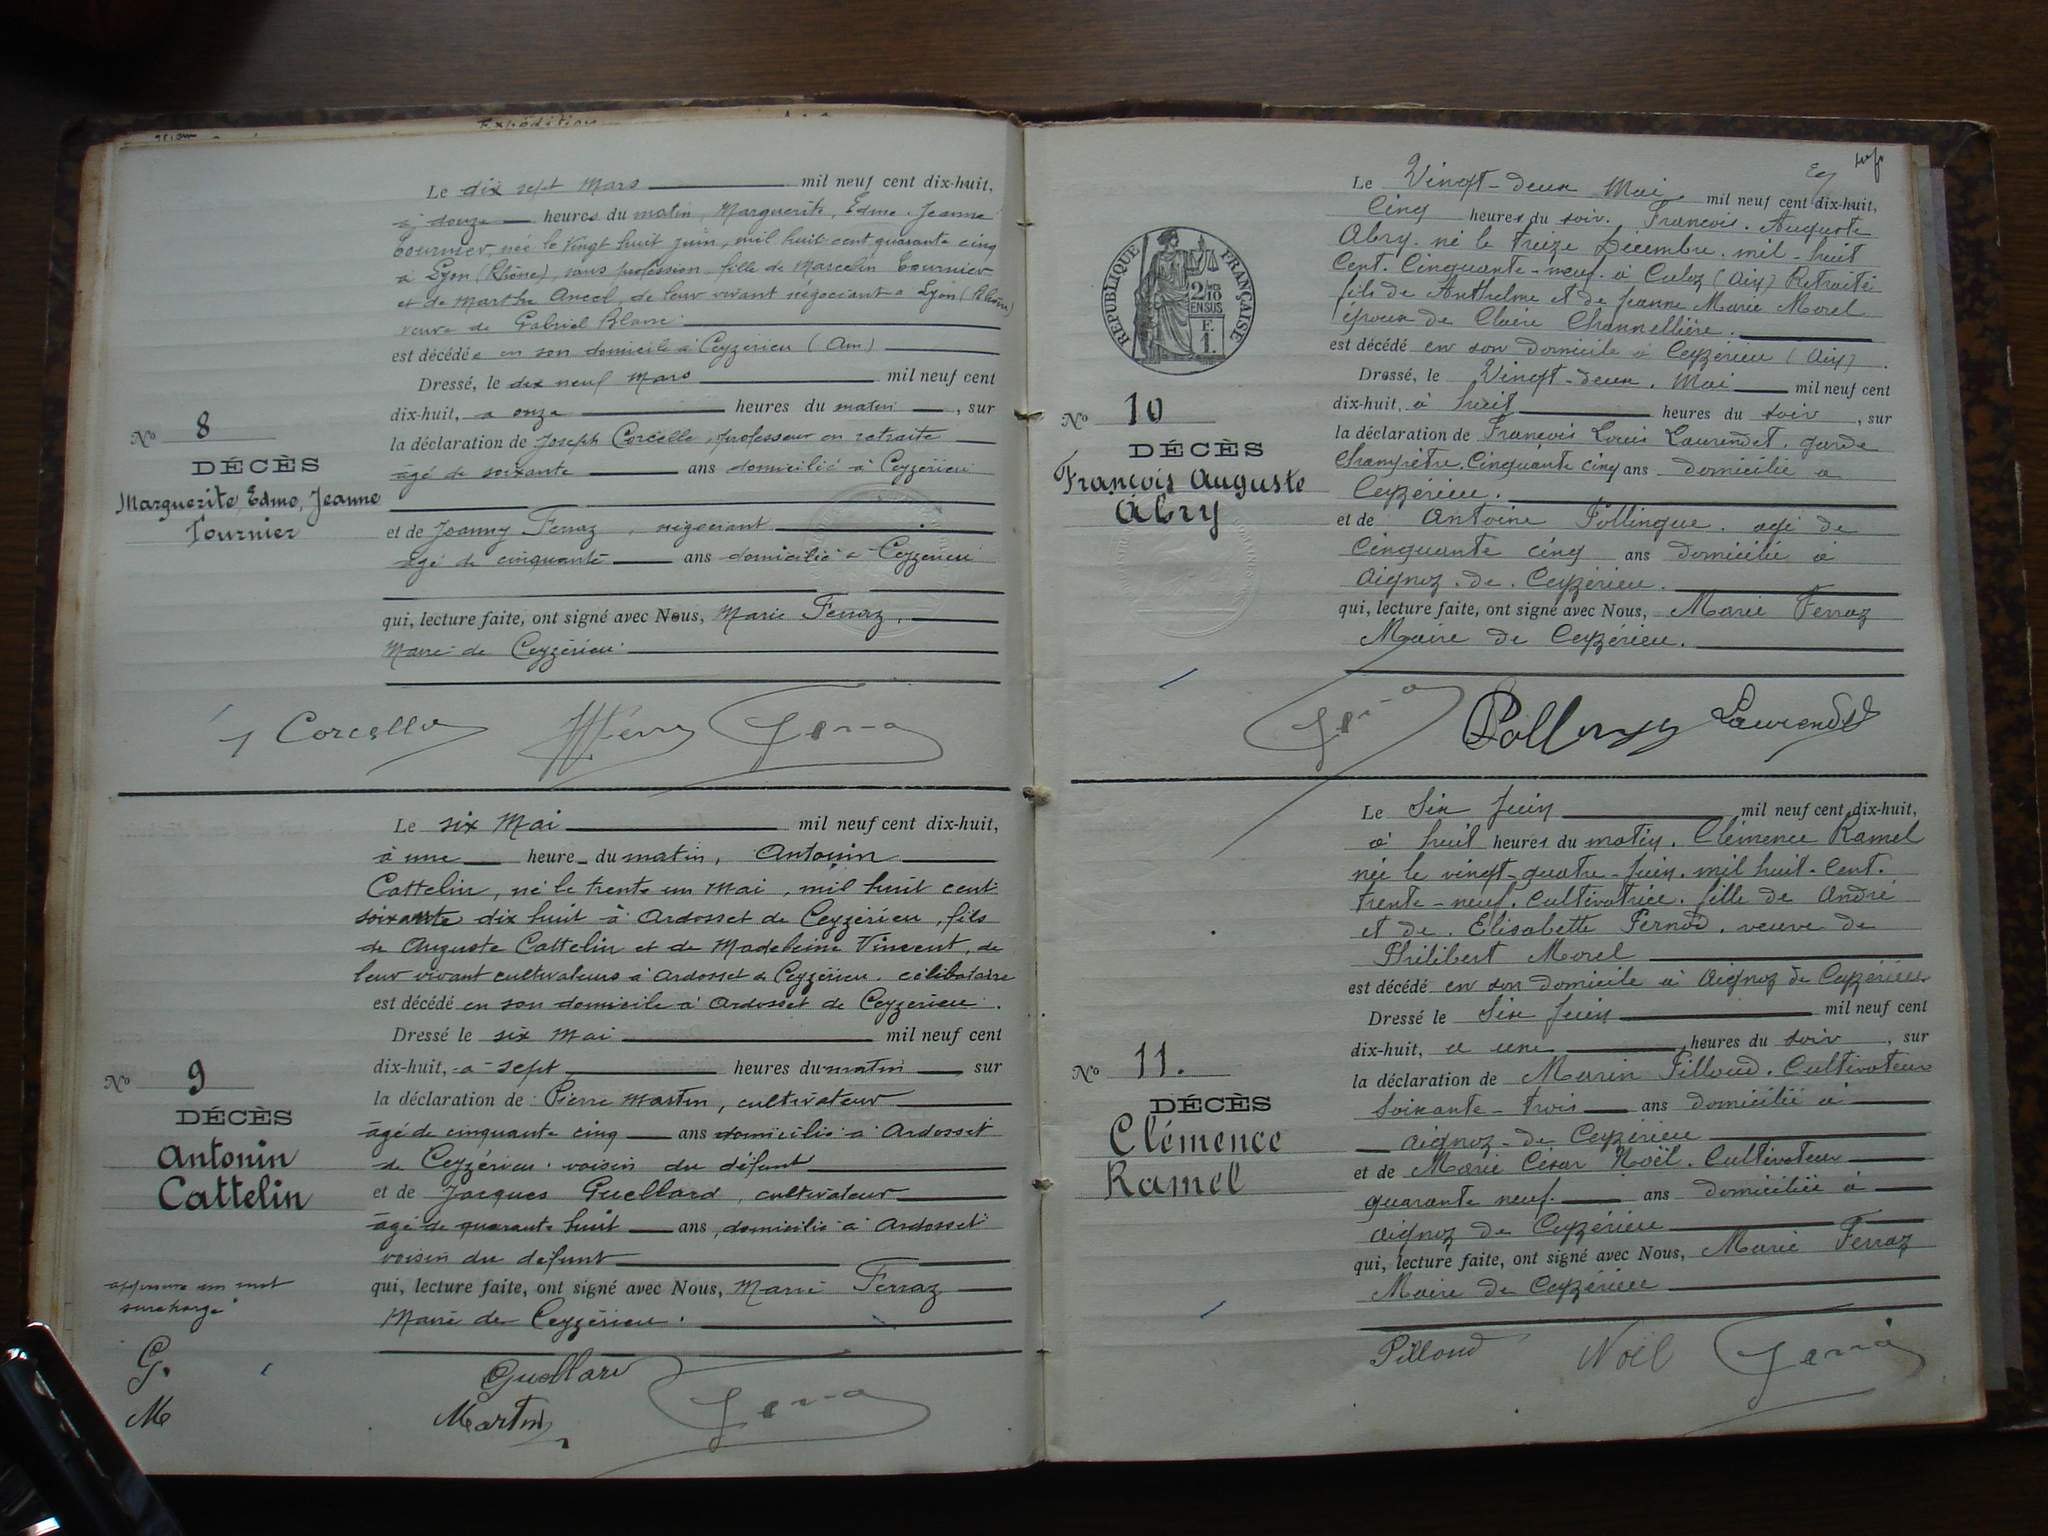 Expédition
Le dix sept Mars mil neuf cent dix-huit,
à douze heures du matin, Marguerite, Edme, Jeanne
Tournier, née le vingt huit juin, mil huit cent quarante cinq
à Lyon (Rhône), sans profession, fille de Marcelin Tournier
et de Marthe Ancel, de leur vivant négociant à Lyon (Rhône)
veuve de Gabriel Blanc
est décédée en son domicile à Ceyzerieu (Ain)
Dressé, le dix neuf Mars mil neuf cent
dix-huit, à onze heures du matin, sur
No 8
la déclaration de Joseph Corcelle, professeur en retraite
DÉCÈS
âgé de soixante ans domicilié à Ceyzérieu
Marguerite, Edme, Jeanne
Tournier
et de Joanny Ferraz, négociant
âgé de cinquante ans domicilié à Ceyzerieu
qui, lecture faite, ont signé avec Nous, Marie Ferraz,
Maire de Ceyzérieu
J Corcelle
Le six Mai mil neuf cent dix-huit,
à une heure du matin, Antonin
Cattelin, né le trente un Mai, mil huit cent
soixante dix huit à Ardosset de Ceyzérieu, fils
de Auguste Cattelin et de Madeleine Vincent, de
leur vivant cultivateurs à Ardosset de Ceyzérieu. célibataire
est décédé en son domicile à Ardosset de Ceyzerieu.
Dressé le six Mai mil neuf cent
dix-huit, à sept heures du matin sur
No 9
la déclaration de Pierre Martin, cultivateur
DÉCÈS
âgé de cinquante cinq ans domicilié à Ardosset
Antonin
de Ceyzérieu. voisin du défunt
Cattelin
et de Jacques Guellard, cultivateur
âgé de quarante huit ans, domicilié à Ardosset
voisin du défunt
approuvé un mot
surchargé
qui, lecture faite, ont signé avec Nous, Marie Ferraz
Maire de Ceyzérieu.
G.
M
Guellard
Martin
Le Vingt-deux Mai mil neuf cent dix-huit,
Cinq heures du soir. François. Auguste
Abry. né le treize Décembre. mil-huit
Cent. Cinquante-neuf. à Culoz (Ain) Retraité
fils de Anthelme et de Jeanne Marie Morel
époux de Claire Channellière.
est décédé en son domicile à Ceyzérieu (Ain).
RÉPUBLIQUE FRANÇAISE
2/10 EN SUS
F. 1.
Dressé, le Vingt-deux. Mai mil neuf cent
No 10
dix-huit, à huit heures du soir, sur
DÉCÈS
la déclaration de François Louis Laurendet. garde
François Auguste
Abry
Champêtre. Cinquante cinq ans domicilié à
Ceyzérieu.
et de Antoine Pollingue. agé de
Cinquante cinq ans domicilié à
Aignoz. de. Ceyzérieu.
qui, lecture faite, ont signé avec Nous, Marie Ferraz
Maire de Ceyzérieu.
Laurendet
Le Six Juin mil neuf cent dix-huit,
à huit heures du matin. Clémence Ramel
née le vingt-quatre-Juin. mil huit. Cent.
trente-neuf. Cultivatrice. fille de André
et de. Elisabette Pernod. veuve de
Philibert Morel
est décédé en son domicile à Aignoz de Ceyzérieu.
Dressé le Six Juin mil neuf cent
dix-huit, à une heures du soir, sur
No 11.
la déclaration de Marin Pilloud. Cultivateur
DÉCÈS
Soixante-trois ans domicilié à
Clémence
Aignoz-de Ceyzérieu
Ramel
et de Marie César Noël. Cultivateur
quarante neuf. ans domicilié à
Aignoz de Ceyzérieu
qui, lecture faite, ont signé avec Nous, Marie Ferraz
Maire de Ceyzérieu
Pilloud Noël